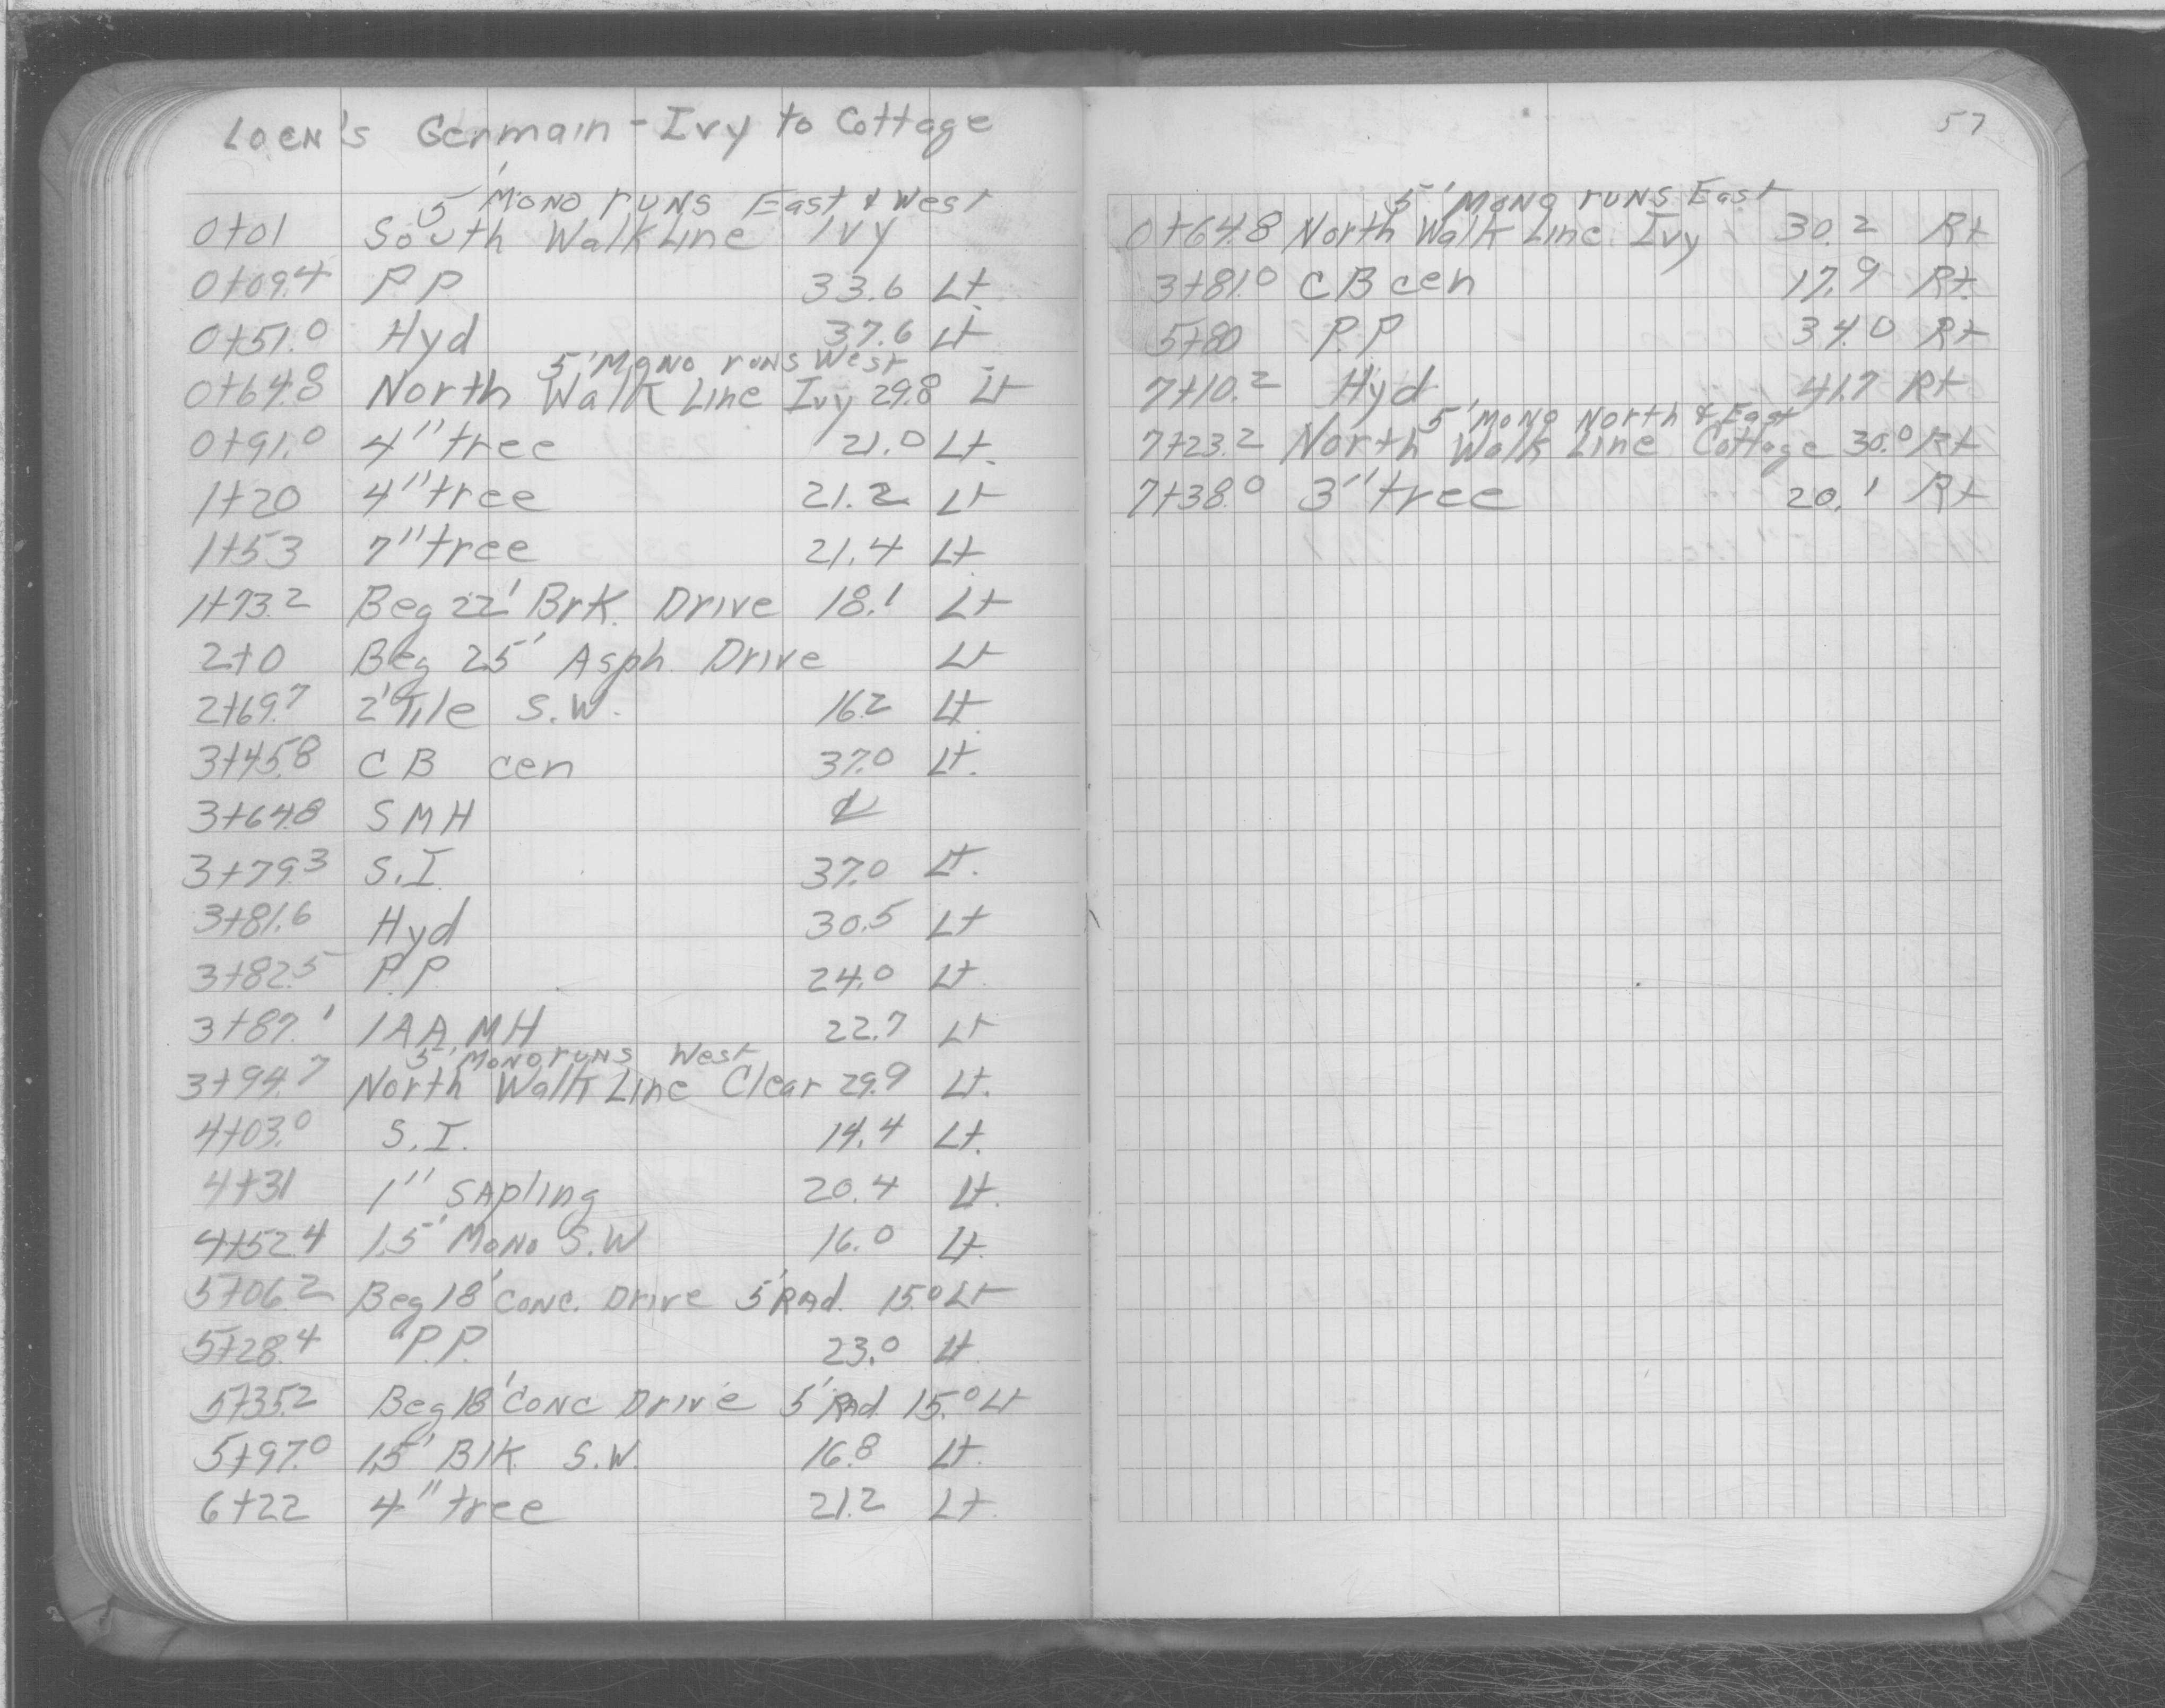 LOCN'S Germain - Ivy to Cottage
5' MONO runs East & West
0+01 South Walk Line Ivy
0+09.4 P P 33.6 Lt.
0+51.0 Hyd 37.6 Lt
5' Mono runs West
0+64.8 North Walk Line Ivy 29.8 Lt
0+91.0 4" tree 21.0 Lt.
1+20 4" tree 21.2 Lt
1+53 7" tree 21.4 Lt
1+73.2 Beg 22' Brk. Drive 18.1 Lt
2+0 Beg 25' Asph. Drive Lt
2+69.7 2' Tile S.W. 16.2 Lt
3+45.8 C B cen 37.0 Lt.
3+64.8 S M H ℄
3+79.3 S.I. 37.0 Lt.
3+81.6 Hyd 30.5 Lt
3+82.5 P.P. 24.0 Lt.
3+87.1 1AA MH 22.7 Lt
5' MONO runs West
3+94.7 North Walk Line Clear 29.9 Lt.
4+03.0 S.I. 14.4 Lt.
4+31 1" Sapling 20.4 Lt.
4+52.4 1.5' Mono S.W 16.0 Lt.
5+06.2 Beg 18' conc. Drive 5' Rad. 15.0 Lt
5+28.4 P.P. 23.0 Lt
5+35.2 Beg 18' Conc Drive 5' Rad 15.0 Lt
5+97.0 1.5' Blk. S.W. 16.8 Lt.
6+22 4" tree 21.2 Lt.
57
5' Mono runs East
0+64.8 North Walk Line Ivy 30.2 Rt
3+81.0 C B cen 17.9 Rt.
5+80 P.P 34.0 Rt
7+10.2 Hyd 41.7 Rt
5' Mono North & East
7+23.2 North Walk Line Cottage 30.0 Rt
7+38.0 3" tree 20.1 Rt